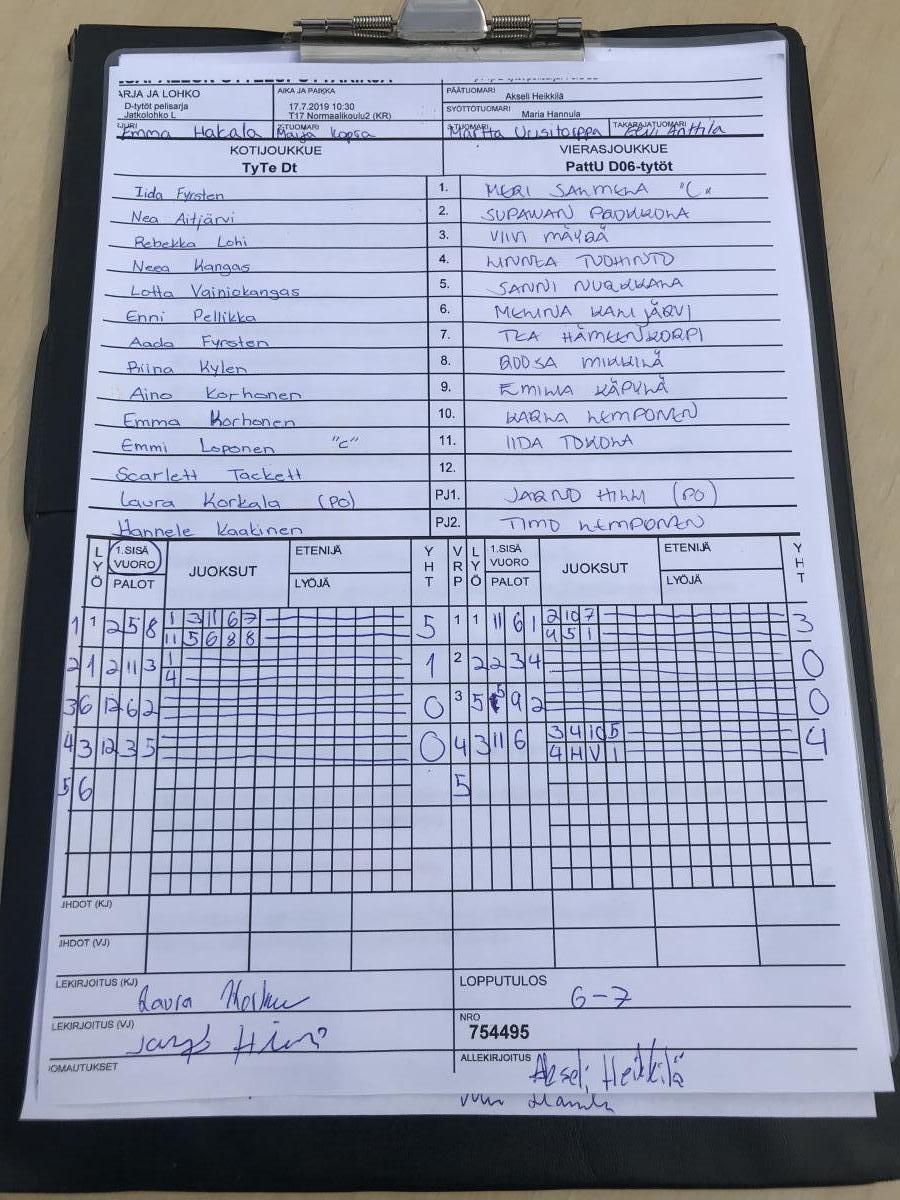 ARJA JA LOHKO
D-tytöt pelisarja
Jatkolohko L
AIKA JA PAIKKA
17.7.2019 10:30
T17 Normaalikoulu2 (KR)
PÄÄTUOMARI
Akseli Heikkilä
SYÖTTÖTUOMARI
Maria Hannula
Emma Hakala
2-TUOMARI
Maija Kopsa
3-TUOMARI
Martta
TAKARAJATUOMARI
Eevi Anttila
KOTIJOUKKUE
TyTe Dt
VIERASJOUKKUE
PattU D06-tytöt
Iida Fyrsten 1. MERI SAHMELA "C"
Nea Aitjärvi 2. SUPAWAN PROKKOLA
Rebekka Lohi 3. VIIVI MÄYRÄ
Neea Kangas 4. LINNEA TUOHINTO
Lotta Vainiokangas 5. SANNI NURKKALA
Enni Pellikka 6. MELINA KALLJÄRVI
Aada Fyrsten 7. TEA HÄMEENKORPI
Riina Kylen 8. ROOSA MIKKILÄ
Aino Korhonen 9. EMILIA KÄPYLÄ
Emma Korhonen 10. KARLA LEMPONEN
Emmi Loponen "C" 11. IIDA TOKOLA
Scarlett Tackett 12.
Laura Korkala (PO) PJ1. JARNO HILLI (PO)
Hannele Kaakinen PJ2. TIMO LEMPONEN
LYÖ 1.SISÄ VUORO PALOT JUOKSUT ETENIJÄ LYÖJÄ YHT VRP LYÖ 1.SISÄ VUORO PALOT JUOKSUT ETENIJÄ LYÖJÄ YHT
1 1 2 5 8 1 3 11 6 7 5 1 1 11 6 1 2 10 7 3
11 5 6 8 8 4 5 1
2 1 2 11 3 1 1 2 2 2 3 4 0
4
3 6 12 6 2 0 3 5 5 9 2 0
4 3 12 3 5 0 4 3 11 6 3 4 10 5 4
4 H V 1
5 6 5
JHDOT (KJ)
JHDOT (VJ)
LEKIRJOITUS (KJ)
Laura
LOPPUTULOS
6-7
LEKIRJOITUS (VJ)
NRO
754495
OMAUTUKSET
ALLEKIRJOITUS
Akseli Heikkilä